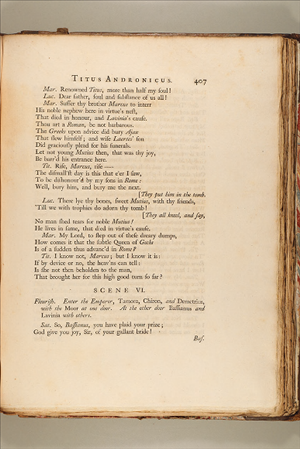 TITUS ANDRONICUS. 407
Mar. Renowned Titus, more than half my soul!
Luc. Dear father, soul and substance of us all!
Mar. Suffer thy brother Marcus to interr
His noble nephew here in virtue's nest,
That died in honour, and Lavinia's cause.
Thou art a Roman, be not barbarous.
The Greeks upon advice did bury Ajax
That slew himself; and wise Laertes' son
Did graciously plead for his funerals.
Let not young Mutius then, that was thy joy,
Be barr'd his entrance here.
Tit. Rise, Marcus, rise —
The dismall'st day is this that e'er I saw,
To be dishonour'd by my sons in Rome:
Well, bury him, and bury me the next.
[They put him in the tomb.
Luc. There lye thy bones, sweet Mutius, with thy friends,
'Till we with trophies do adorn thy tomb!
[They all kneel, and say,
No man shed tears for noble Mutius!
He lives in fame, that died in virtue's cause.
Mar. My Lord, to step out of these dreary dumps,
How comes it that the subtle Queen of Goths
Is of a sudden thus advanc'd in Rome?
Tit. I know not, Marcus; but I know it is:
If by device or no, the heav'ns can tell:
Is she not then beholden to the man,
That brought her for this high good turn so far?
SCENE VI.
Flourish. Enter the Emperor, Tamora, Chiron, and Demetrius,
with the Moor at one door. At the other door Bassianus and
Lavinia with others.
Sat. So, Bassianus, you have plaid your prize;
God give you joy, Sir, of your gallant bride!
Bas.